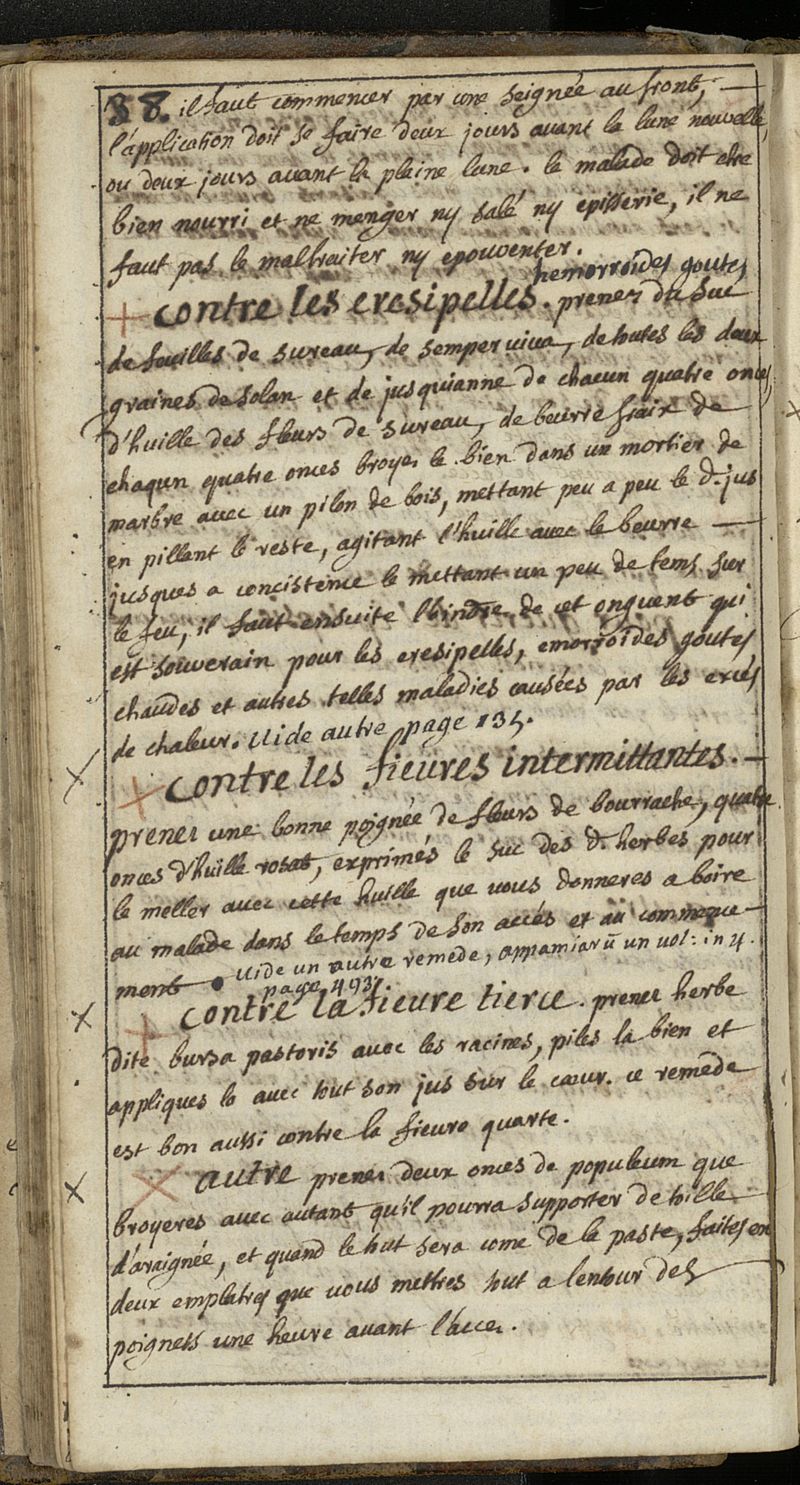 38. il faut commencer par une seignée au front,
l'application doit se faire deux jours avant la lune nouvelle,
ou deux jours avant la pleine lune. le malade doit etre
bien nourri et ne menger ny salé ny episserie, il ne
faut pas le maltraiter ny epouventer.
hemorroïdes goutes
contre les eresipelles. prenez du suc
de feuilles de sureau, de semper viva, de toutes les deux
graines de solan et de jusquianne de chacun quatre onces,
d'huille des fleurs de sureau, de beurre fraix de
chaqun quatre onces broyez le bien dans un mortier de
marbre avec un pilon de bois, mettant peu a peu le d. jus
en pillant le reste, agitant l'huille avec le beurre
jusques a concistence le mettant un peu de tems sur
le feu, il faut ensuite l'oindre de cet onguent qui
est souverain pour les eresipelles, emorroïdes goutes
chaudes et autres telles maladies causées par les excés
de chaleur. Vide autre page 135.
contre les fieures intermittantes.
prenez une bonne poignée de fleurs de bourrache, quatre
onces d'huille rosat, exprimés le suc des d. herbes pour
le meller avec cette huille que vous donneres a boire
au malade dans le temps de son accés et au commence-
ment Vide un autre remede, appamiarũ un vol: in 4.
page 493.
contre la fieure tierce. prenez herbe
dite bursa pastoris avec les racines, piles la bien et
appliques la avec tout son jus sur le cœur. ce remede
est bon aussi contre la fieure quarte.
autre prenez deux onces de populeum que
broyeres avec autant qu'il pourra supporter de toille
d'araignée, et quand le tout sera come de la paste, faites en
deux emplatres que vous mettres tout a lentour des
poignets une heure avant l'accez.